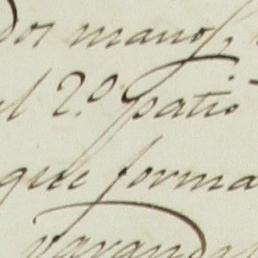 dos manos,
el 2.º patio
que forma
varanda